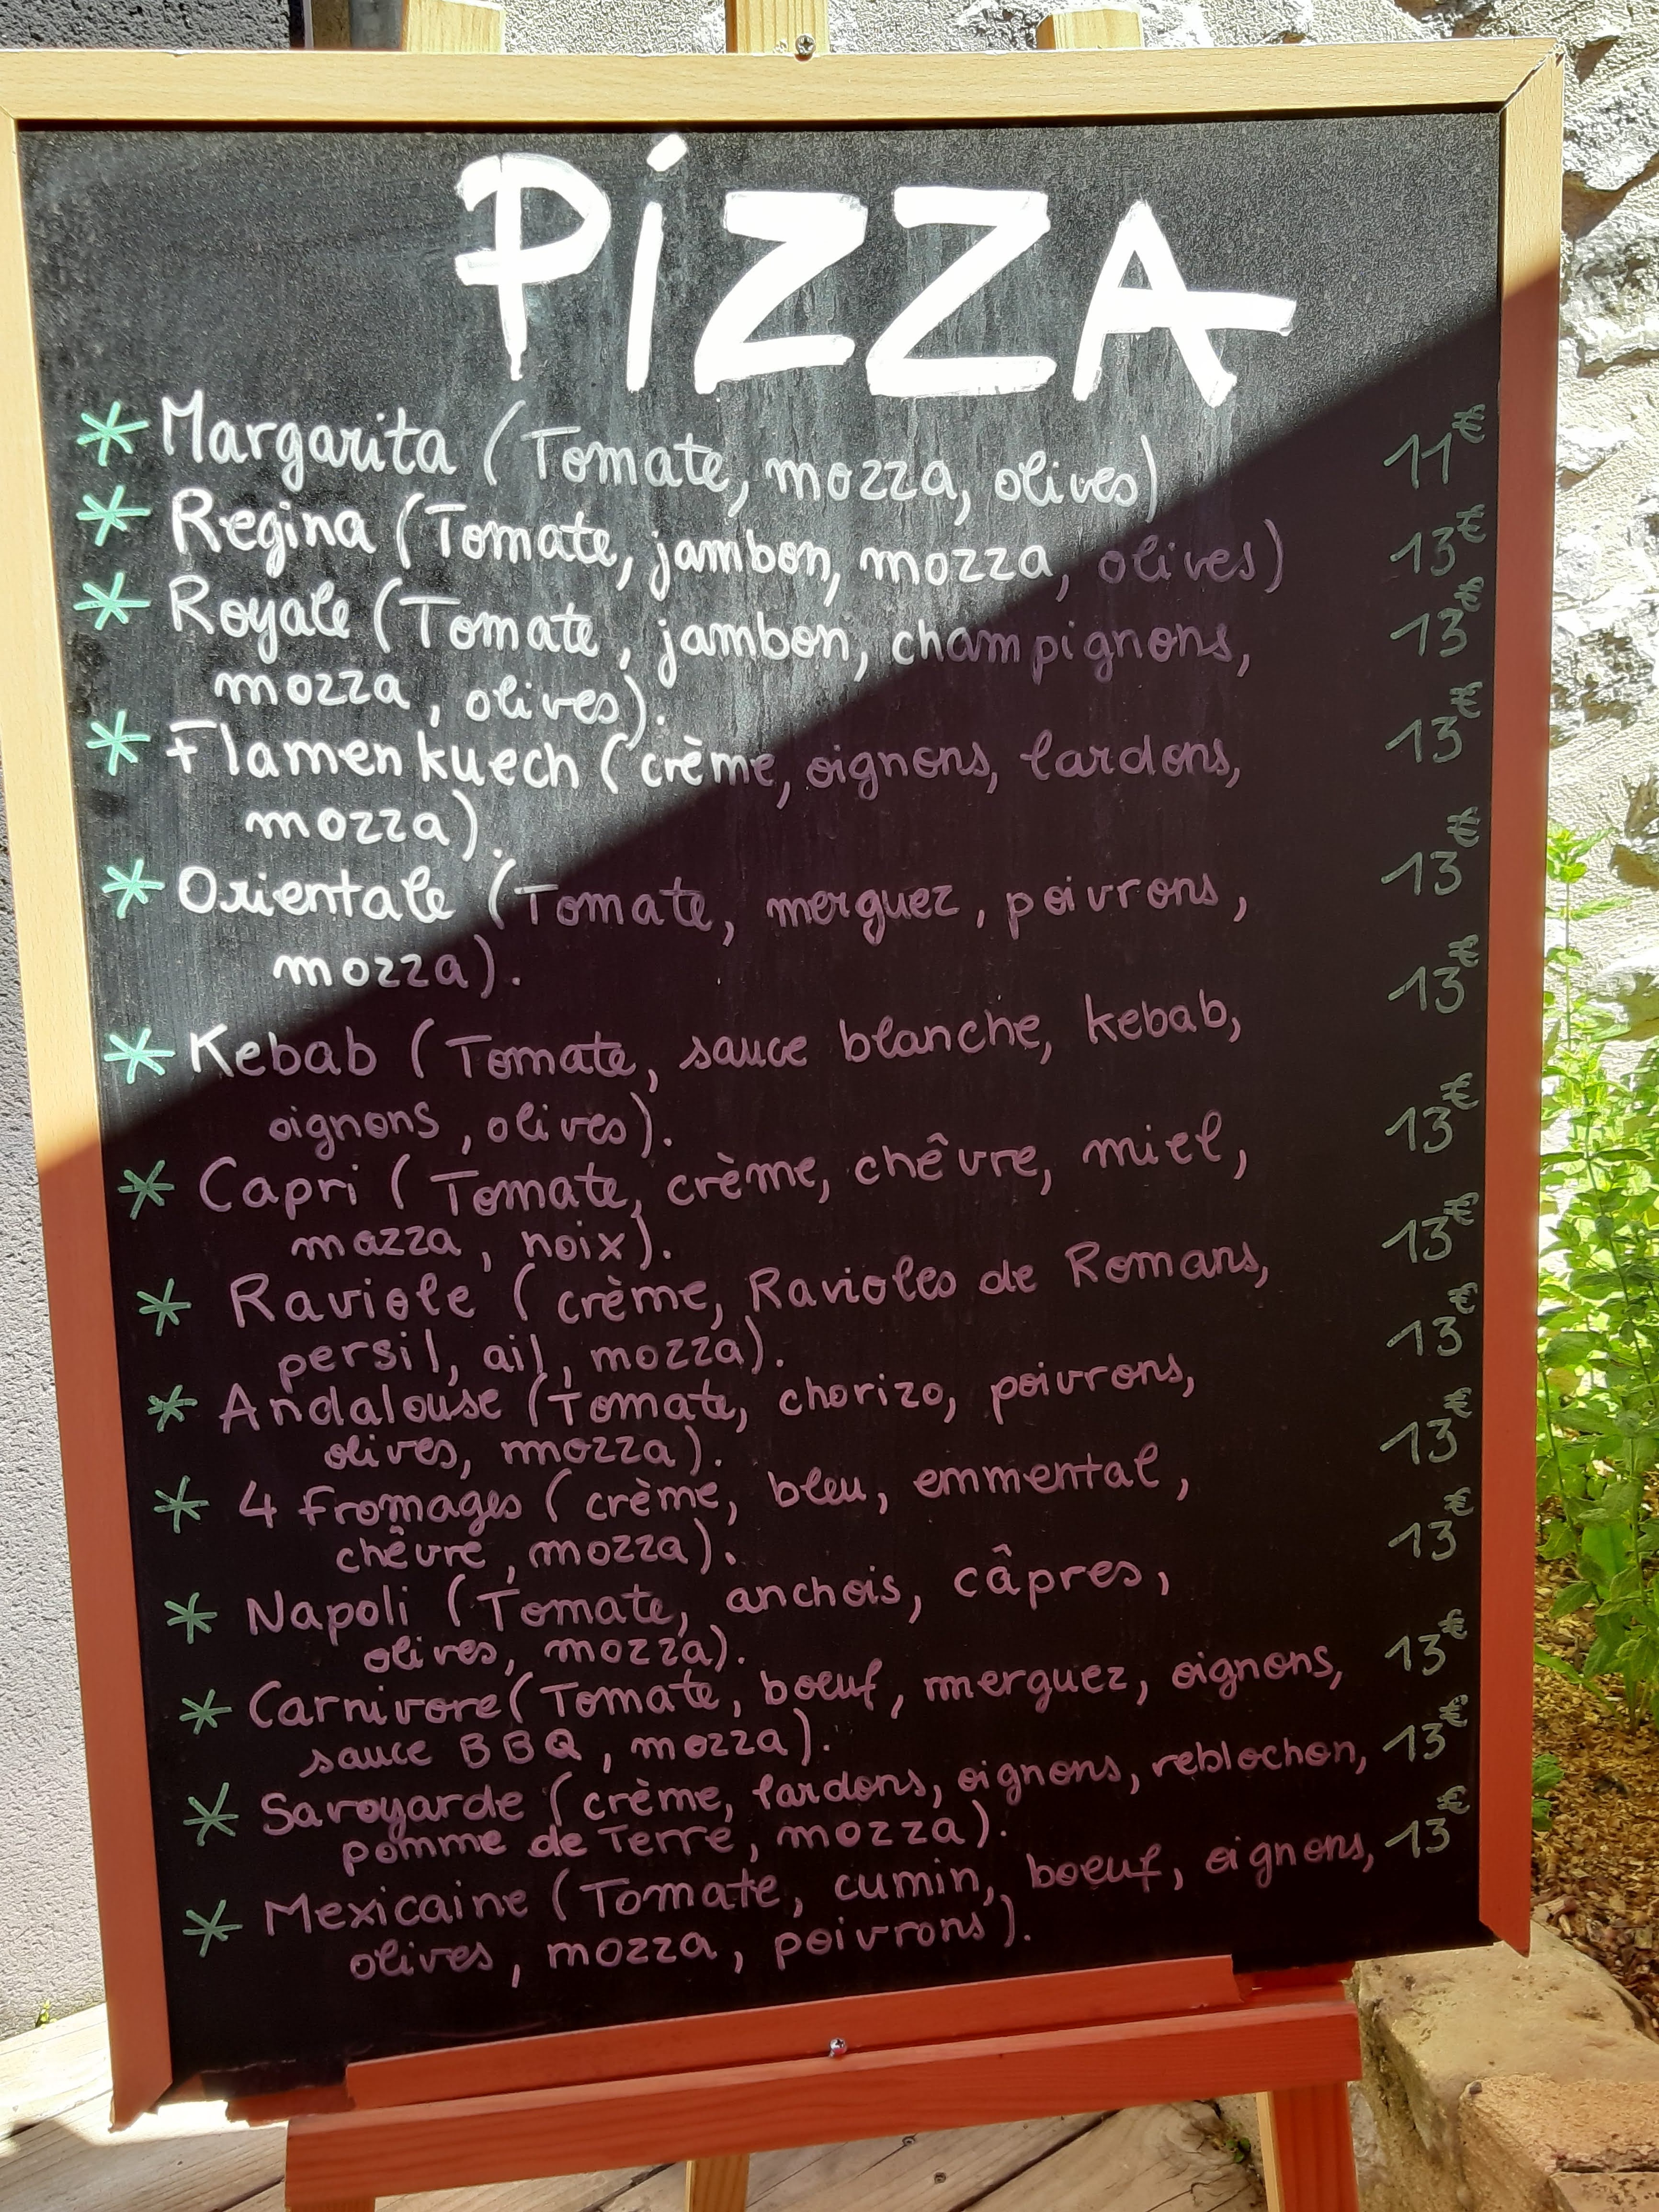 PiZZA
* Margarita (Tomate, mozza, olives) 11€
* Regina (Tomate, jambon, mozza, olives) 13€
* Royale (Tomate, jambon, champignons, 13€
mozza, olives).
* Flamenkuech (crème, oignons, lardons, 13€
mozza).
* Orientale (Tomate, merguez, poivrons, 13€
mozza).
* Kebab (Tomate, sauce blanche, kebab, 13€
oignons, olives).
* Capri (Tomate, crème, chêvre, miel, 13€
mazza, noix).
* Raviole (crème, Ravioles de Romans, 13€
persil, ail, mozza).
* Andalouse (Tomate, chorizo, poivrons, 13€
olives, mozza).
* 4 fromages (crème, bleu, emmental, 13€
chêvre, mozza).
* Napoli (Tomate, anchois, câpres, 13€
olives, mozza).
* Carnivore (Tomate, boeuf, merguez, oignons, 13€
sauce BBQ, mozza).
* Savoyarde (crème, lardons, oignons, reblochon, 13€
pomme de Terre, mozza).
* Mexicaine (Tomate, cumin, boeuf, oignons, 13€
olives, mozza, poivrons).